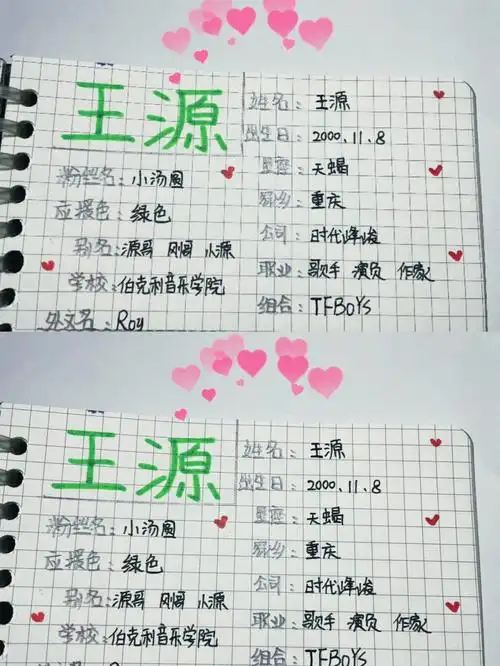 王源
粉丝名：小汤圆
应援色：绿色
别名：源哥 刚阔 小源
学校：伯克利音乐学院
外文名：Roy
姓名：王源
出生日：2000.11.8
星座：天蝎
家乡：重庆
公司：时代峰峻
职业：歌手 演员 作家
组合：TFBOYS
王源
粉丝名：小汤圆
应援色：绿色
别名：源哥 刚阔 小源
学校：伯克利音乐学院
姓名：王源
出生日：2000.11.8
星座：天蝎
家乡：重庆
公司：时代峰峻
职业：歌手 演员 作家
组合：TFBOYS